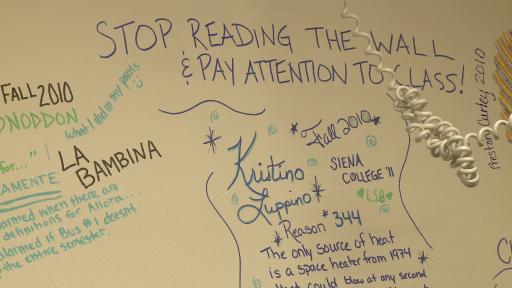 STOP READING THE WALL
& PAY ATTENTION TO CLASS!
FALL 2010
what I did in my pants
for..."
LA
BAMBINA
CAMENTE
when there are
definitions for Allora...
alarmed if Bus #1 doesnt
the entire semester.
Fall 2010
Kristino
Luppino
SIENA
COLLEGE '11
LSB
Reason #344
The only source of heat
is a space heater from 1974
that could blow at any second
Preston Curley 2010